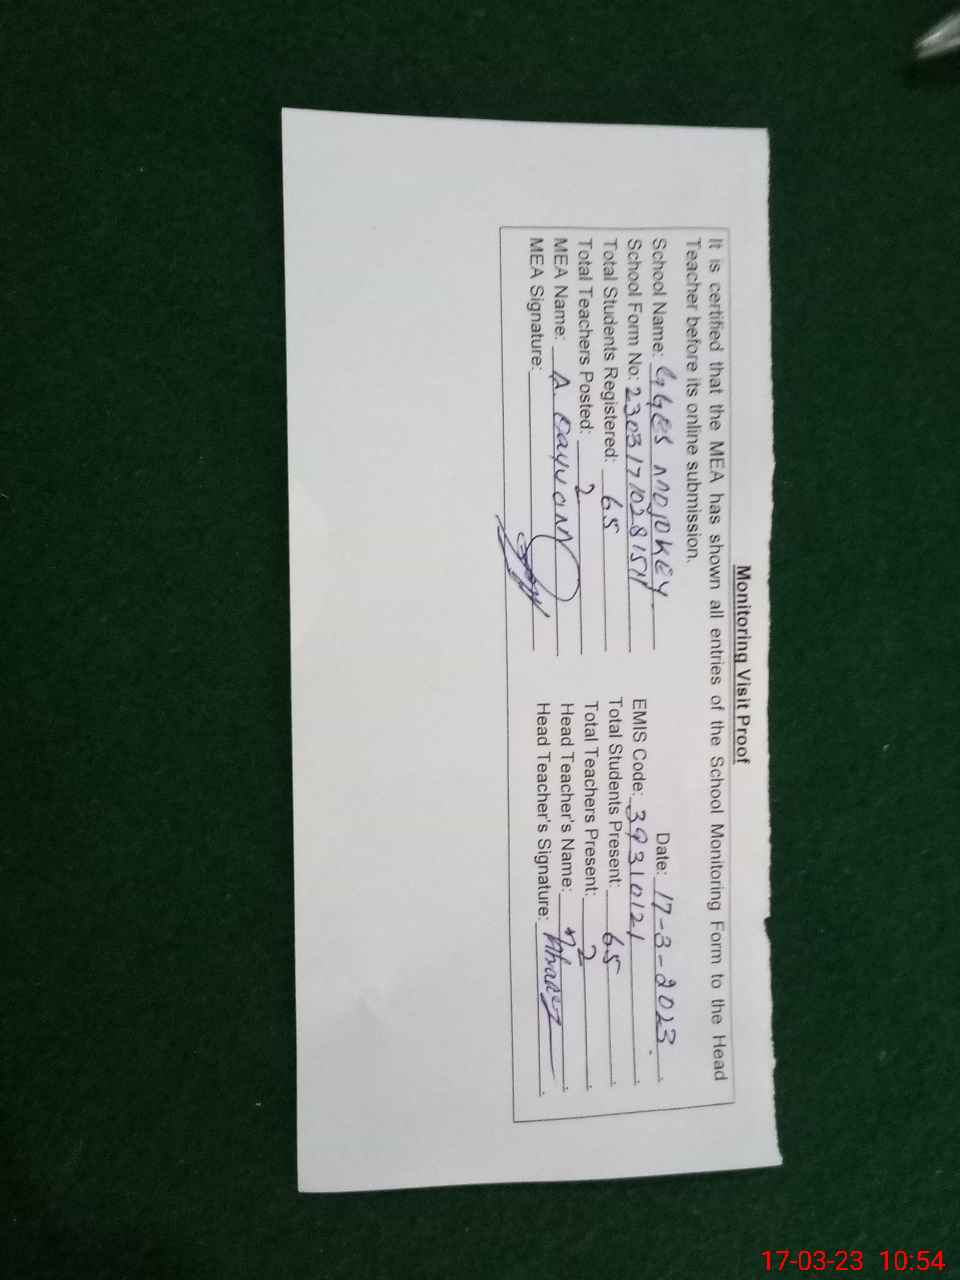 Monitoring Visit Proof
It is certified that the MEA has shown all entries of the School Monitoring Form to the Head
Teacher before its online submission.
School Name: GGES Date: 17-3-2023.
School Form No: EMIS Code: 39310121
Total Students Registered: 65 Total Students Present: 65
Total Teachers Posted: 2 Total Teachers Present: 2
MEA Name: A. Head Teacher's Name:
MEA Signature: Head Teacher's Signature:
17-03-23 10:54